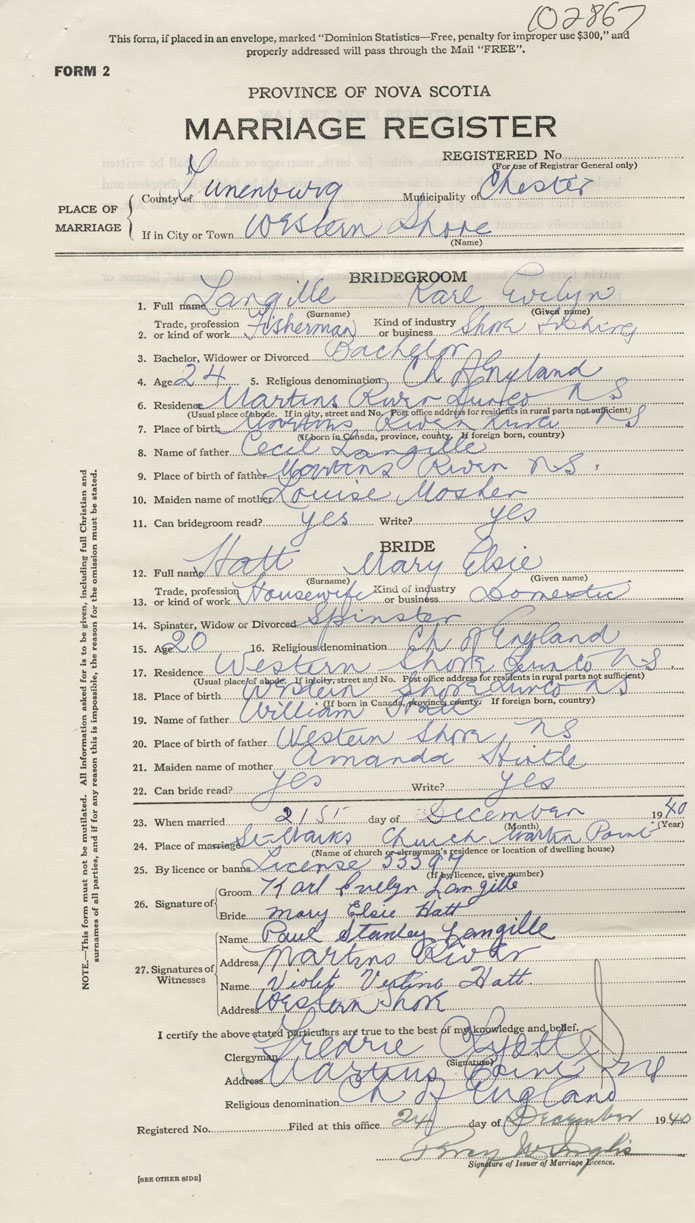 102867
This form, if placed in an envelope, marked "Dominion Statistics—Free, penalty for improper use $300," and
properly addressed will pass through the Mail "FREE".
FORM 2
PROVINCE OF NOVA SCOTIA
MARRIAGE REGISTER
REGISTERED No.
(For use of Registrar General only)
PLACE OF MARRIAGE
County of Lunenburg Municipality of Chester
If in City or Town Western Shore
(Name)
BRIDEGROOM
1. Full name Langille Karl Evelyn
(Surname) (Given name)
2. Trade, profession or kind of work Fisherman Kind of industry or business Shore Fishing
3. Bachelor, Widower or Divorced Bachelor
4. Age 24 5. Religious denomination Ch of England
6. Residence Martins River Lun Co N S
(Usual place of abode. If in city, street and No. Post office address for residents in rural parts not sufficient)
7. Place of birth Martins River Lun N S
(If born in Canada, province, county. If foreign born, country)
8. Name of father Cecil Langille
9. Place of birth of father Martins River N S.
10. Maiden name of mother Louise Mosher
11. Can bridegroom read? yes Write? yes
BRIDE
12. Full name Hatt Mary Elsie
(Surname) (Given name)
13. Trade, profession or kind of work Housewife Kind of industry or business Domestic
14. Spinster, Widow or Divorced Spinster
15. Age 20 16. Religious denomination Ch of England
17. Residence Western Shore Lun Co N S
(Usual place of abode. If in city, street and No. Post office address for residents in rural parts not sufficient)
18. Place of birth Western Shore Lun Co N S
(If born in Canada, province, county. If foreign born, country)
19. Name of father William Hatt
20. Place of birth of father Western Shore N S
21. Maiden name of mother Amanda Hirtle
22. Can bride read? yes Write? yes
23. When married 21st day of December 1940
(Month) (Year)
24. Place of marriage St-Marks Church Martin Point
(Name of church or clergyman's residence or location of dwelling house)
25. By licence or banns License 33397
(If by licence, give number)
26. Signature of
Groom Karl Evelyn Langille
Bride Mary Elsie Hatt
27. Signatures of Witnesses
Name Paul Stanley Langille
Address Martins River
Name Violet Hatt
Address Western Shore
I certify the above stated particulars are true to the best of my knowledge and belief.
Clergyman Fredric
(Signature)
Address Martins Point N S
Religious denomination Ch of England
Registered No. Filed at this office 24 day of December 1940
Percy
Signature of Issuer of Marriage Licence.
[SEE OTHER SIDE]
NOTE.—This form must not be mutilated. All information asked for is to be given, including full Christian and
surnames of all parties, and if for any reason this is impossible, the reason for the omission must be stated.